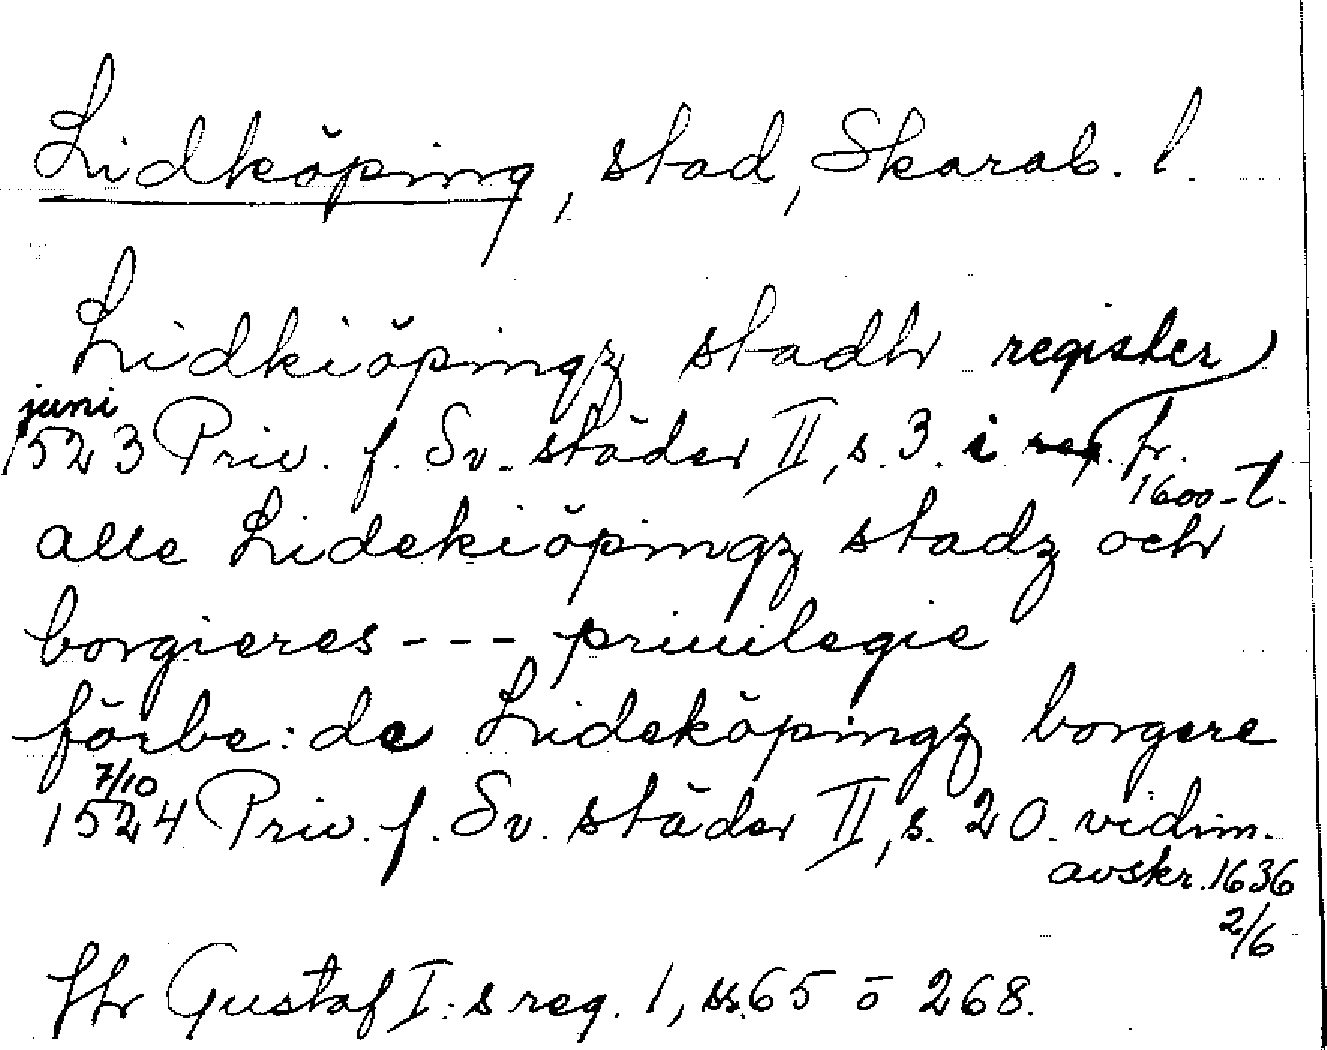 Lidköping, stad, Skarab. l.
Lidkiöpingz stadh register
juni
1523 Priv. f. Sv. städer II, s. 3. i reg. fr.
1600-t.
alle Lidekiöpingz stadz och
borgieres --- priuilegie
förbe: de Lideköpingz borgere
7/10
1524 Priv. f. Sv. städer II, s. 20. vidim.
avskr. 1636
2/6
Jfr Gustaf I:s reg. 1, ss. 65 o 268.